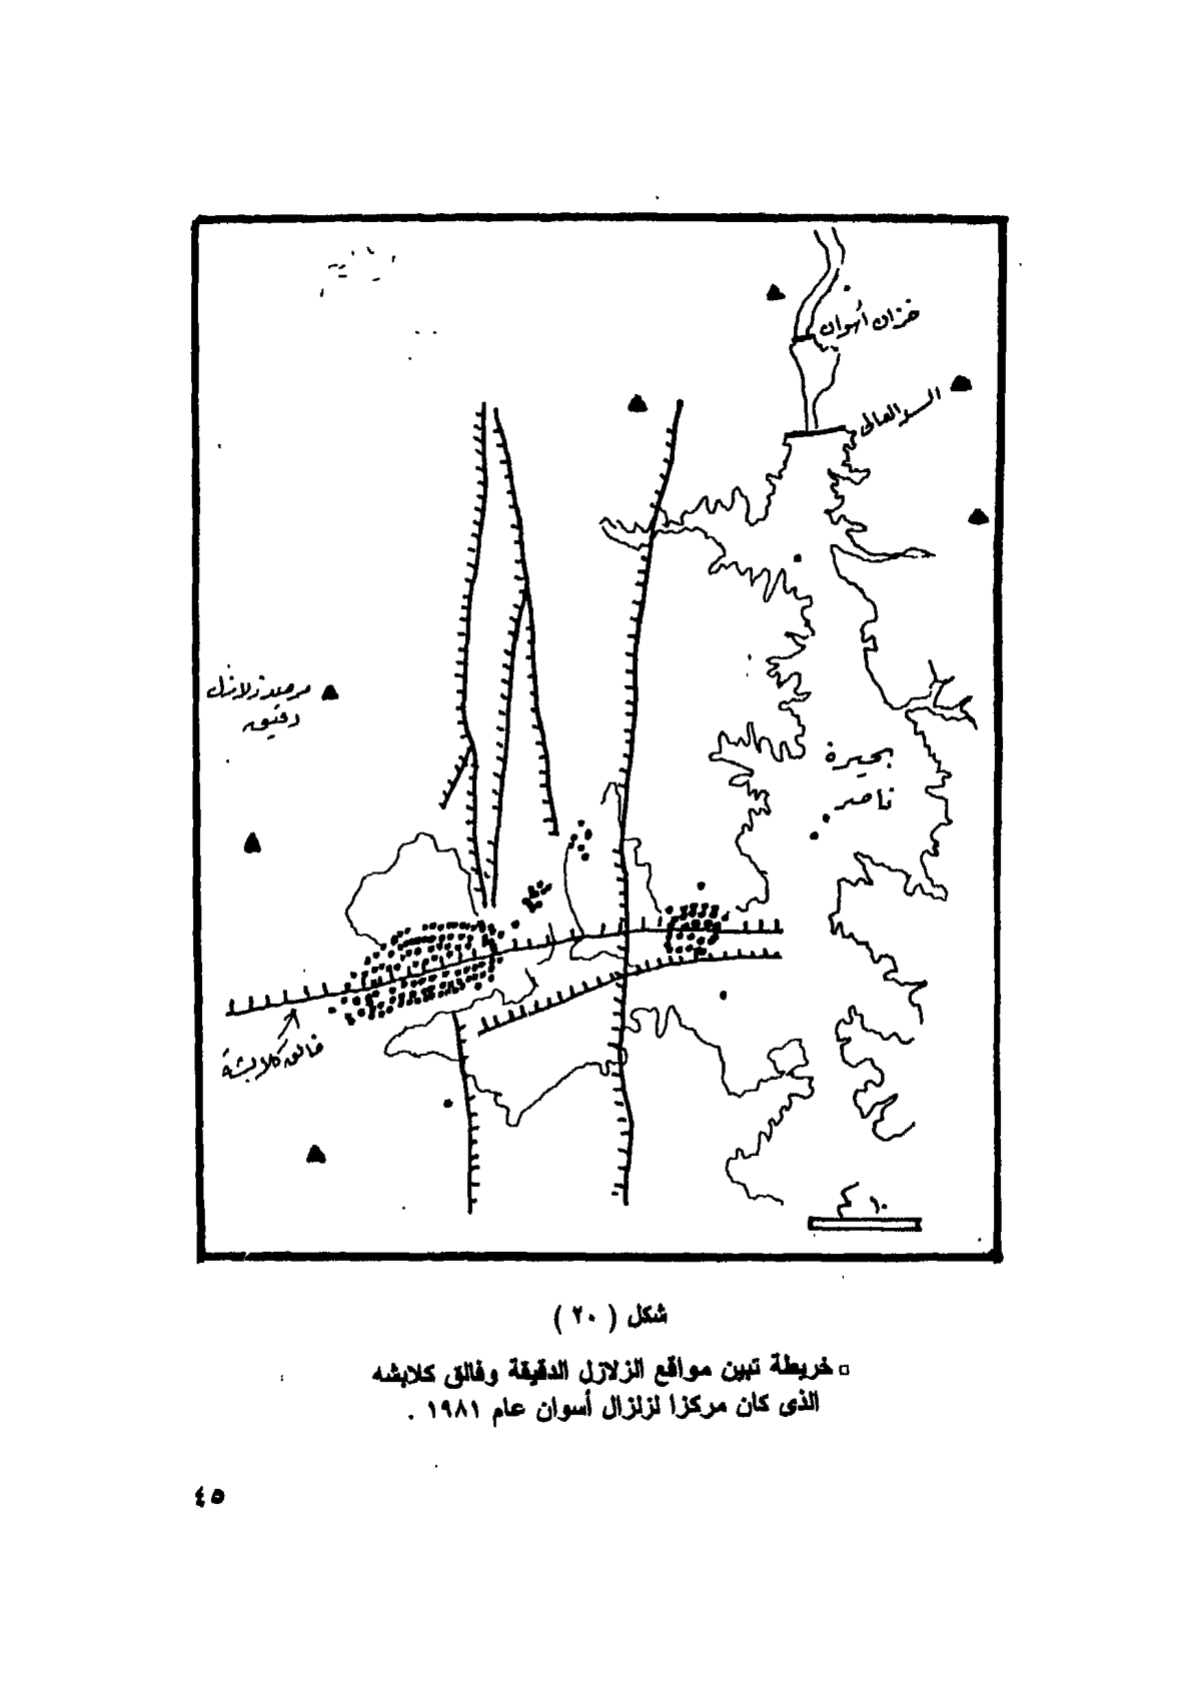 خزان أسوان
السد العالى
مرصد زلازل
دقيقه
بحيرة
ناصر
فالق كلابشة
١٠ كم
شكل ( ٢٠ )
▫ خريطة تبين مواقع الزلازل الدقيقة وفالق كلابشه
الذى كان مركزا لزلزال أسوان عام ١٩٨١ .
٤٥